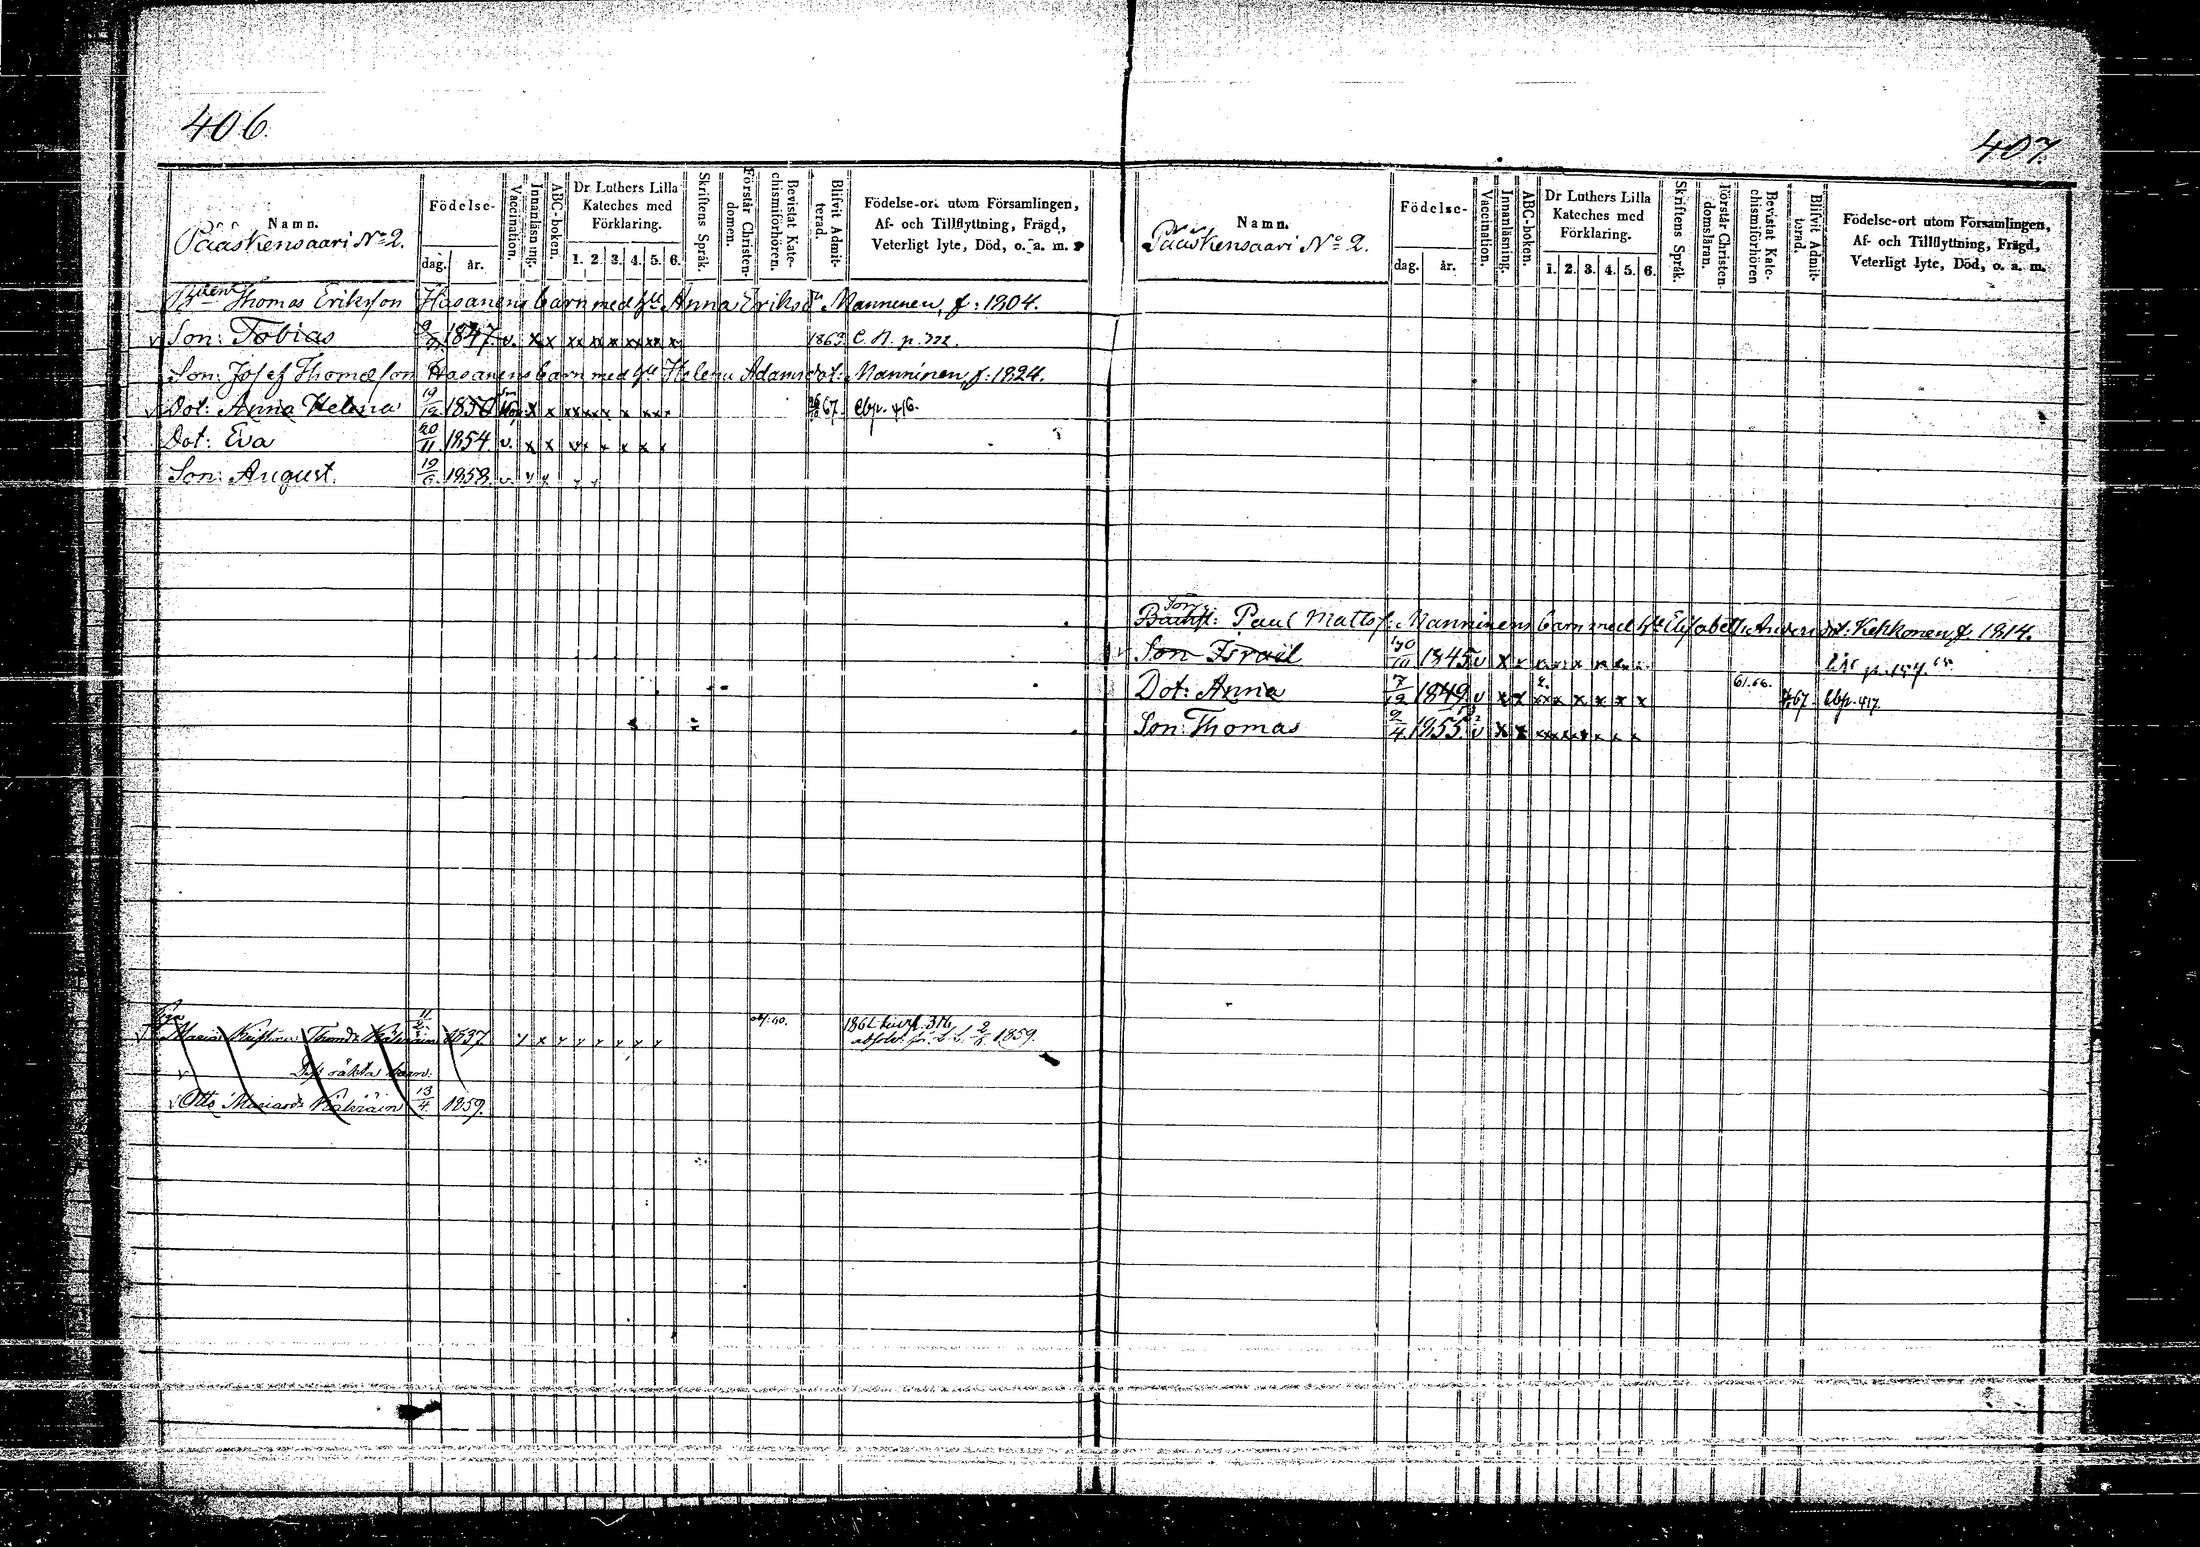 406.
Namn.
Pääskensaari No 2.
Födelse-
dag. år.
Vaccination.
Innanläsning.
ABC-boken.
Dr Luthers Lilla Kateches med Förklaring.
1. 2. 3. 4. 5. 6.
Skriftens Språk.
Förstår Christendomen.
Bevistat Katechismiförhören.
Blifvit Admitterad.
Födelse-ort utom Församlingen,
Af- och Tillflyttning, Frägd,
Veterligt lyte, Död, o. a. m.
Thomas Eriksson Hasanens barn med h. Anna Eriksdr Manninen, f: 1804.
v Son: Tobias 1847. v. x x xx xx x xx xx x 1863. p. 722.
Son: Josef Thomasson Hasanens barn med h. Helena Adamsdot: Manninen, f: 1824.
v Dot: Anna Helena 19/12 1850 x x xx xx x x xx x 67. p. 416.
Dot: Eva 20/11 1854. v. x x x x x x x
Son: August. 19/6 1858. v.
Maria Kristina Thomdr 1837. x 1859.
v barn:
v Otto 13/4 1859.
407.
Namn.
Pääskensaari No 2.
Födelse-
dag. år.
Vaccination.
Innanläsning.
ABC-boken.
Dr Luthers Lilla Kateches med Förklaring.
1. 2. 3. 4. 5. 6.
Skriftens Språk.
Förstår Christendomsläran.
Bevistat Katechismiförhören
Blifvit Admitterad.
Födelse-ort utom Församlingen,
Af- och Tillflyttning, Frägd,
Veterligt lyte, Död, o. a. m.
Paul Mattss: Manninens barn med h. Elisabeth Andersdot: Kekkonen, f. 1814.
v Son Israël 30/10 1845 v x x
Dot: Anna 7/12 1849. v x x x x x x x 61. 66. 67. p. 417.
Son: Thomas 2/4 1855. v x x x x x x x x